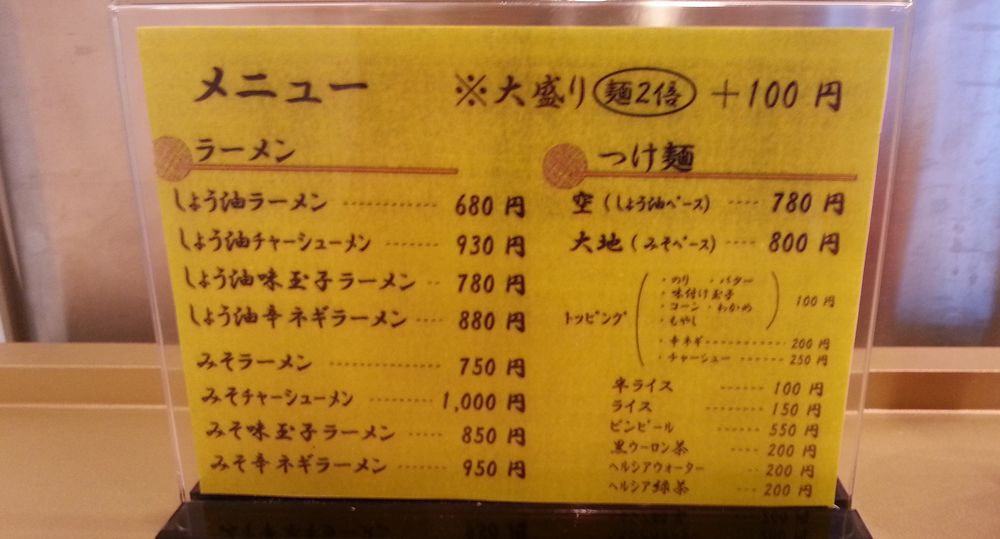 メニュー ※大盛り 麺2倍 +100 円
ラーメン
しょう油ラーメン ………… 680 円
しょう油チャーシューメン ……… 930 円
しょう油味玉子ラーメン …… 780 円
しょう油辛ネギラーメン …… 880 円
みそラーメン ………… 750 円
みそチャーシューメン ……… 1,000 円
みそ味玉子ラーメン …… 850 円
みそ辛ネギラーメン …… 950 円
つけ麺
空(しょう油ベース) …… 780 円
大地(みそベース) …… 800 円
トッピング
・のり ・バター
・味付け玉子
・コーン・わかめ
・もやし
100 円
・辛ネギ………… 200 円
・チャーシュー …… 250 円
半ライス …… 100 円
ライス ……… 150 円
ビンビール …… 550 円
黒ウーロン茶 …… 200 円
ヘルシアウォーター ‥ 200 円
ヘルシア緑茶 … 200 円